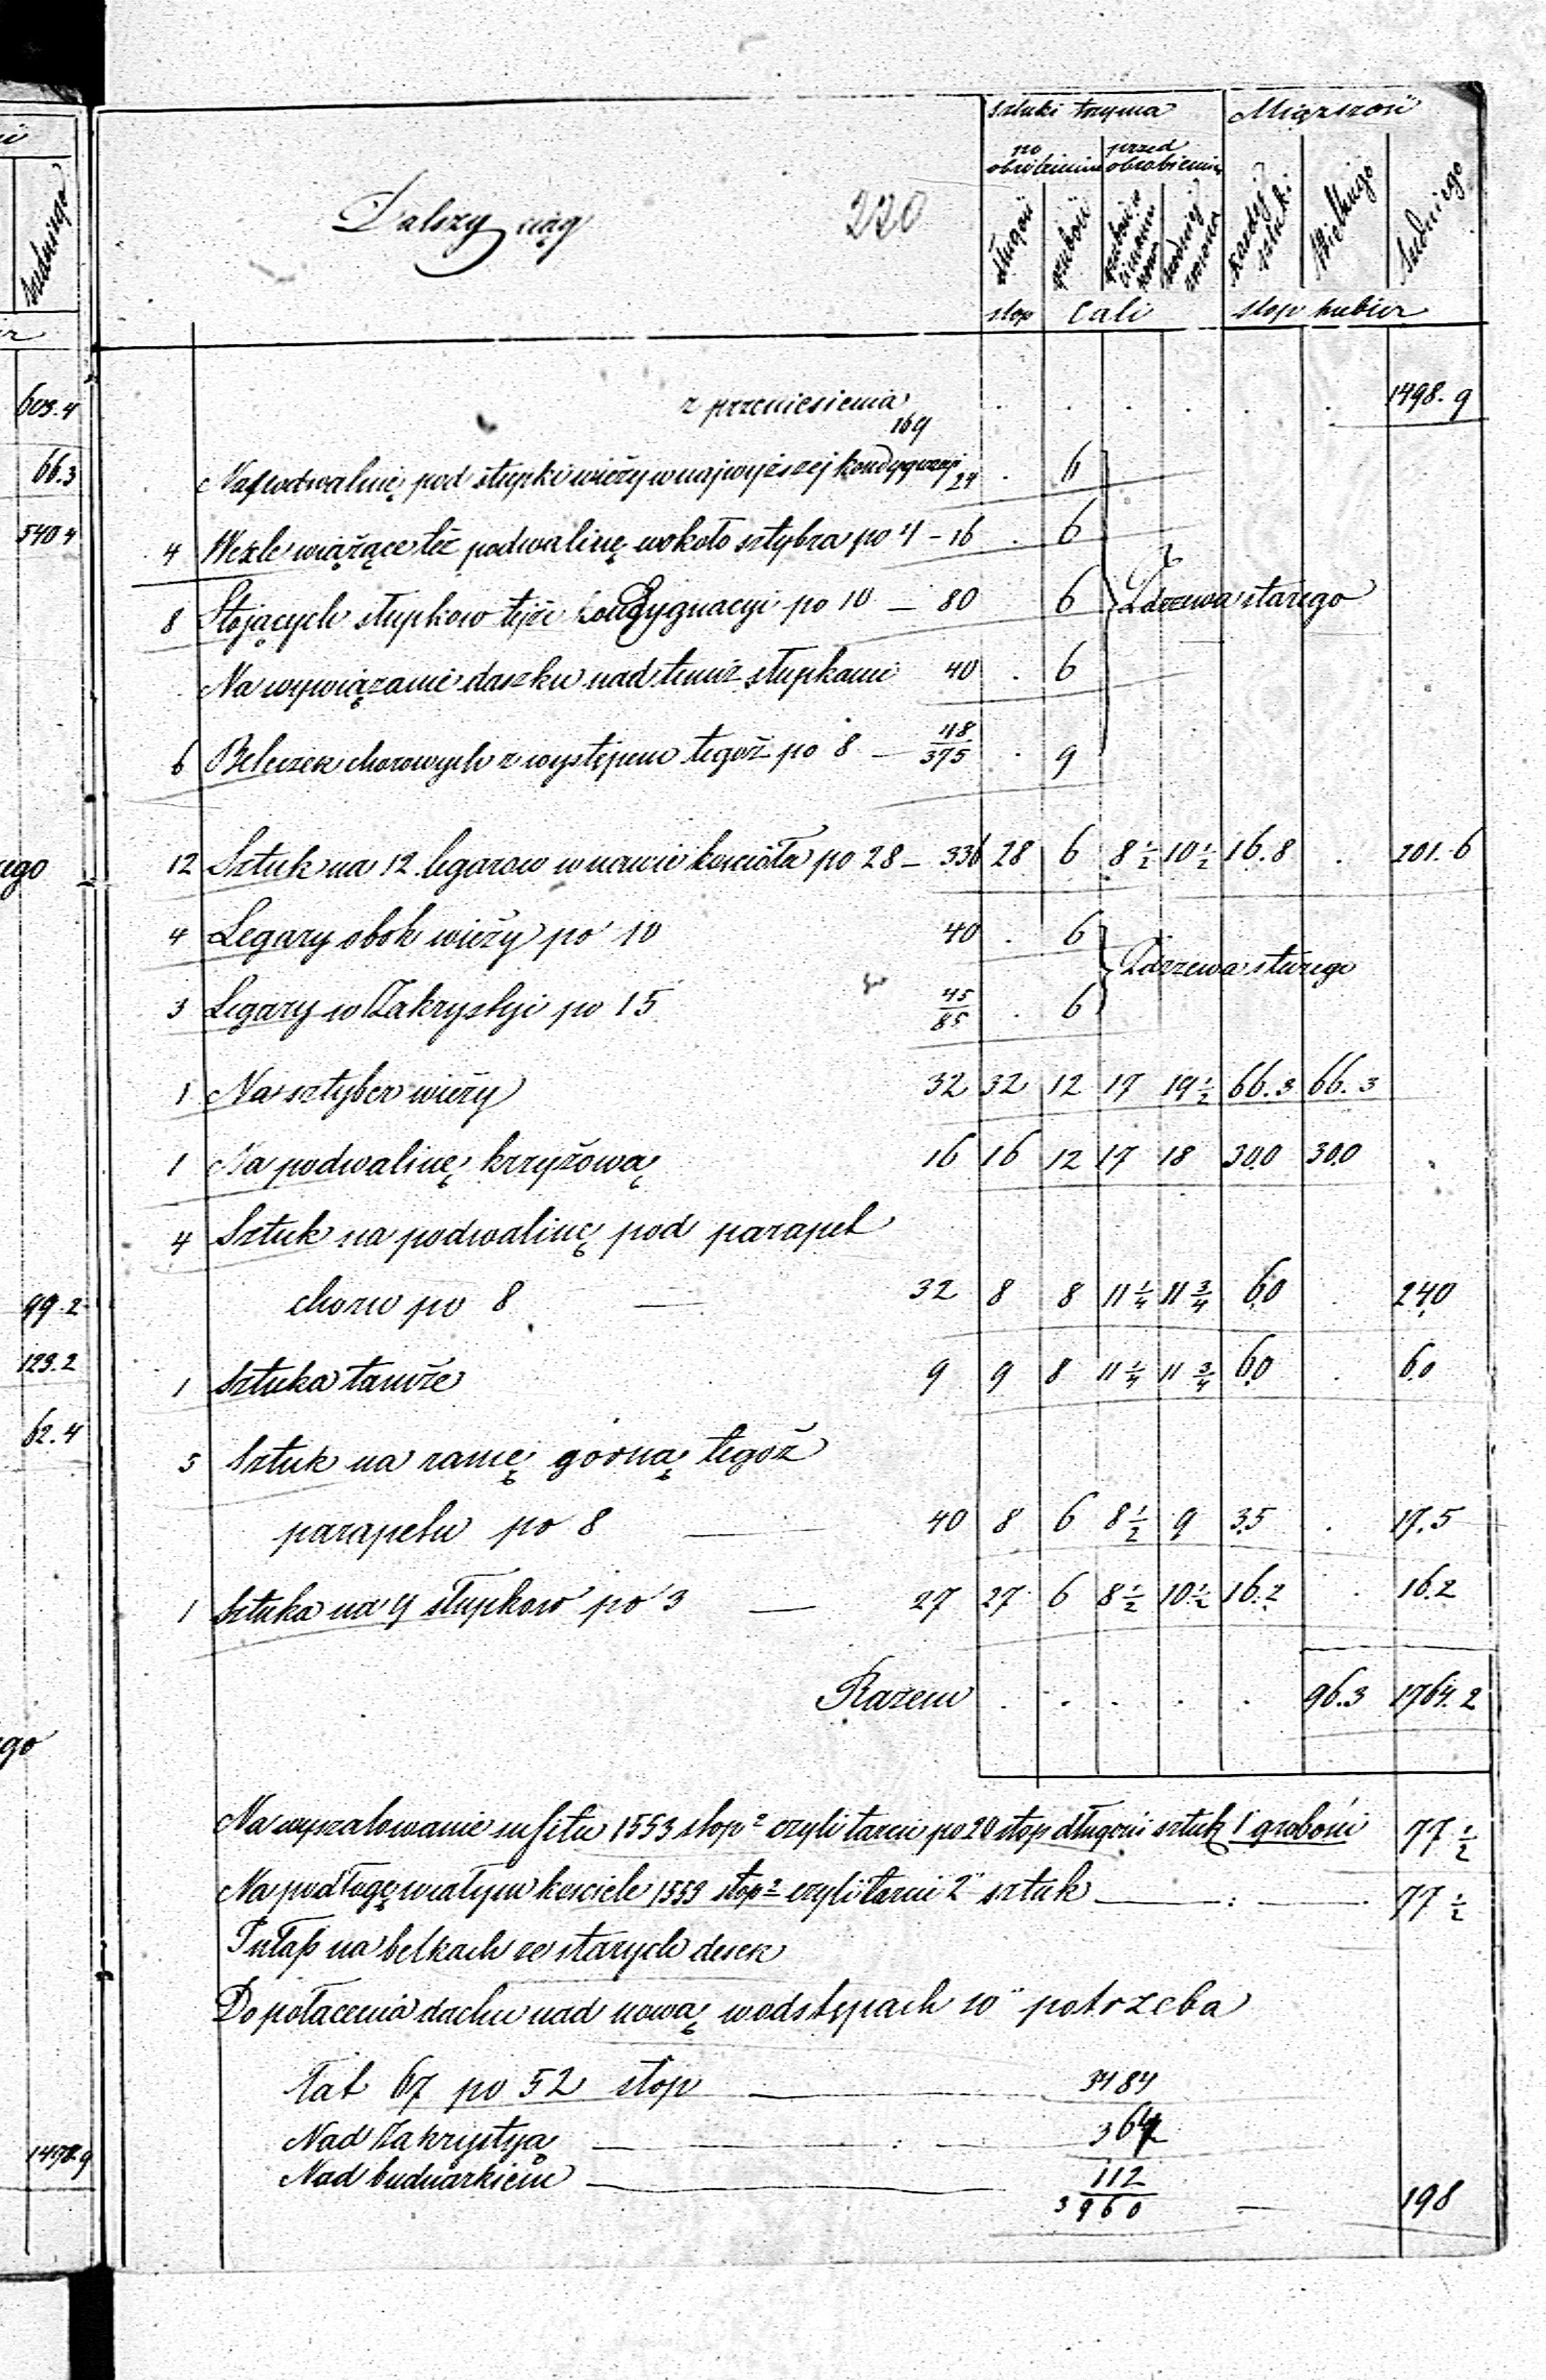 sztuki trzyma Miąższość
po obrobieniu przed obrobieniem
Dalszy ciąg 220
długość grubość każdej sztuki Wielkiego średniego
stop Cali stop kubicz
z przeniesienia . . . . . . 1498.9
169
Na podwalinę pod słupki wieży w najwyższej kondygnacyi 24 . 6
4 Wezle wiążące też podwalinę wokoło sztybra po 4 – 16 . 6
8 Stojących słupkow tejże kondygnacyi po 10 – 80 6 Z drzewa starego
Na wywiązanie daszku nad temiż słupkami 40 . 6
6 Beleczek chorowych z występem tegoż po 8 – 48 . 9
375
12 Sztuk na 12 legarow w nawie kościoła po 28 – 336 28 6 8 1/2 10 1/2 16.8 . 201.6
4 Legary obok wieży po 10 40 . 6
Z drzewa starego
3 Legary w Zakrystyi po 15 45 . 6
85
1 Na sztyber wieży 32 32 12 17 19 1/2 66.3 66.3
1 Na podwalinę krzyżową 16 16 12 17 18 30.0 30.0 .
4 Sztuk na podwalinę pod parapet
choru po 8 — 32 8 8 11 1/4 11 3/4 6.0 . 24.0
1 Sztuka tamże 9 9 8 11 1/4 11 3/4 6.0 . 6.0
5 Sztuk na ramę gorną tegoż
parapetu po 8 — 40 8 6 8 1/2 9 3.5 . 17.5
1 Sztuka na 9 słupkow po 3 — 27 27 6 8 1/2 10 1/2 16.2 . 16.2
Razem . . . . . 96.3 1764.2
Na wyszalowanie sufitu 1553 stop² czyli tarcic po 20 stop długości sztuk 1 grubości 77 1/2
Na podłogę w całym kosciele 1553 stop² czyli tarcic 2" sztuk — : — 77 1/2
Pułap na belkach ze starych desek
Do połacenia dachu nad nawą w odstępach 10" potrzeba
Łat 67 po 52 stop — 3484
Nad Zakrystyą — : — 364
Nad budnarkiem — 112
3960 — 198
średniego
603.4
66.3
540.4
99.2
123.2
62.4
1498.9